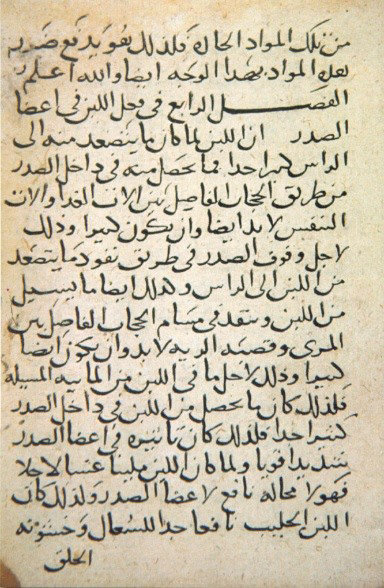 من تلك المواد الحارة فلذلك هو يدفع ضرر
هذه المواد بهذا الوجه ايضا والله اعلم
الفصل الرابع في فعل اللبن في اعضا
الصدر ان اللبن لما كان ما يتصعد منه الى
الراس كثيرا جدا فما يحصل منه في داخل الصدر
من طريق الحجاب الفاصل بين الات الغذا والات
التنفس لا بد ايضا وان يكون كثيرا وذلك
لاجل وقوف الصدر في طريق نفود ما يتصعد
من اللبن الى الراس وكذلك ايضا ما يسيل
من اللبن وينفد في مسام الحجاب الفاصل بين
المرى وقصبة الرية لا بد وان يكون ايضا
كثيرا وذلك لاجل ما في اللبن من المايية المسيلة
فلذلك كان ما يحصل من اللبن في داخل الصدر
كثيرا جدا فلذلك كان تاثيره في اعضا الصدر
شديدا قويا ولما كان اللبن ملينا
فهو لا محالة نافع لاعضا الصدر ولذلك كان
اللبن الحليب نافعا جدا للسعال وخشونة
الحلق